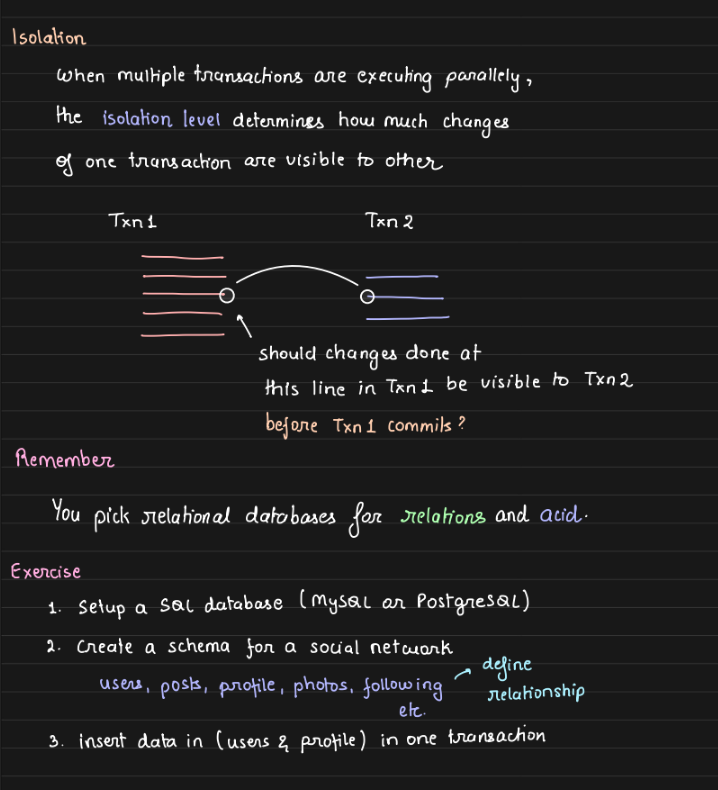 Isolation
when multiple transactions are executing parallely,
the isolation level determines how much changes
of one transaction are visible to other
Txn 1 Txn 2
should changes done at
this line in Txn 1 be visible to Txn 2
before Txn 1 commits?
Remember
You pick relational databases for relations and acid.
Exercise
1. Setup a SQL database (MySQL or PostgreSQL)
2. Create a schema for a social network
users, posts, profile, photos, following
etc.
define
relationship
3. insert data in (users & profile) in one transaction